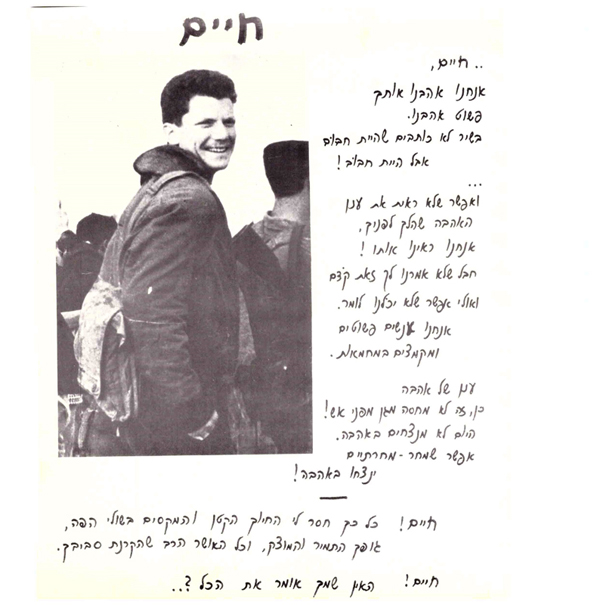 חיים
.. חיים,
אנחנו אהבנו אותך
פשוט אהבנו.
בשיר לא כותבים שהיית חבוב
אבל היית חבוב!
...
ואפשר שלא ראית את ענן
האהבה שהלך לפניך,
אנחנו ראינו אותו!
חבל שלא אמרנו לך זאת קודם
ואולי אפשר שלא יכולנו לומר.
אנחנו אנשים פשוטים
ומקמצים במחמאות.
ענן של אהבה
כן, זה לא מחסה מגן מפני אש!
היום לא מנצחים באהבה.
אפשר שמחר-מחרתיים
ינצחו באהבה!
חיים! כל כך חסר לי החיוך הקטן והמקסים בשולי הפה,
גופך התמיר והמוצק, וכל האושר הרב שהקרנת סביבך.
חיים! האין שמך אומר את הכל?..